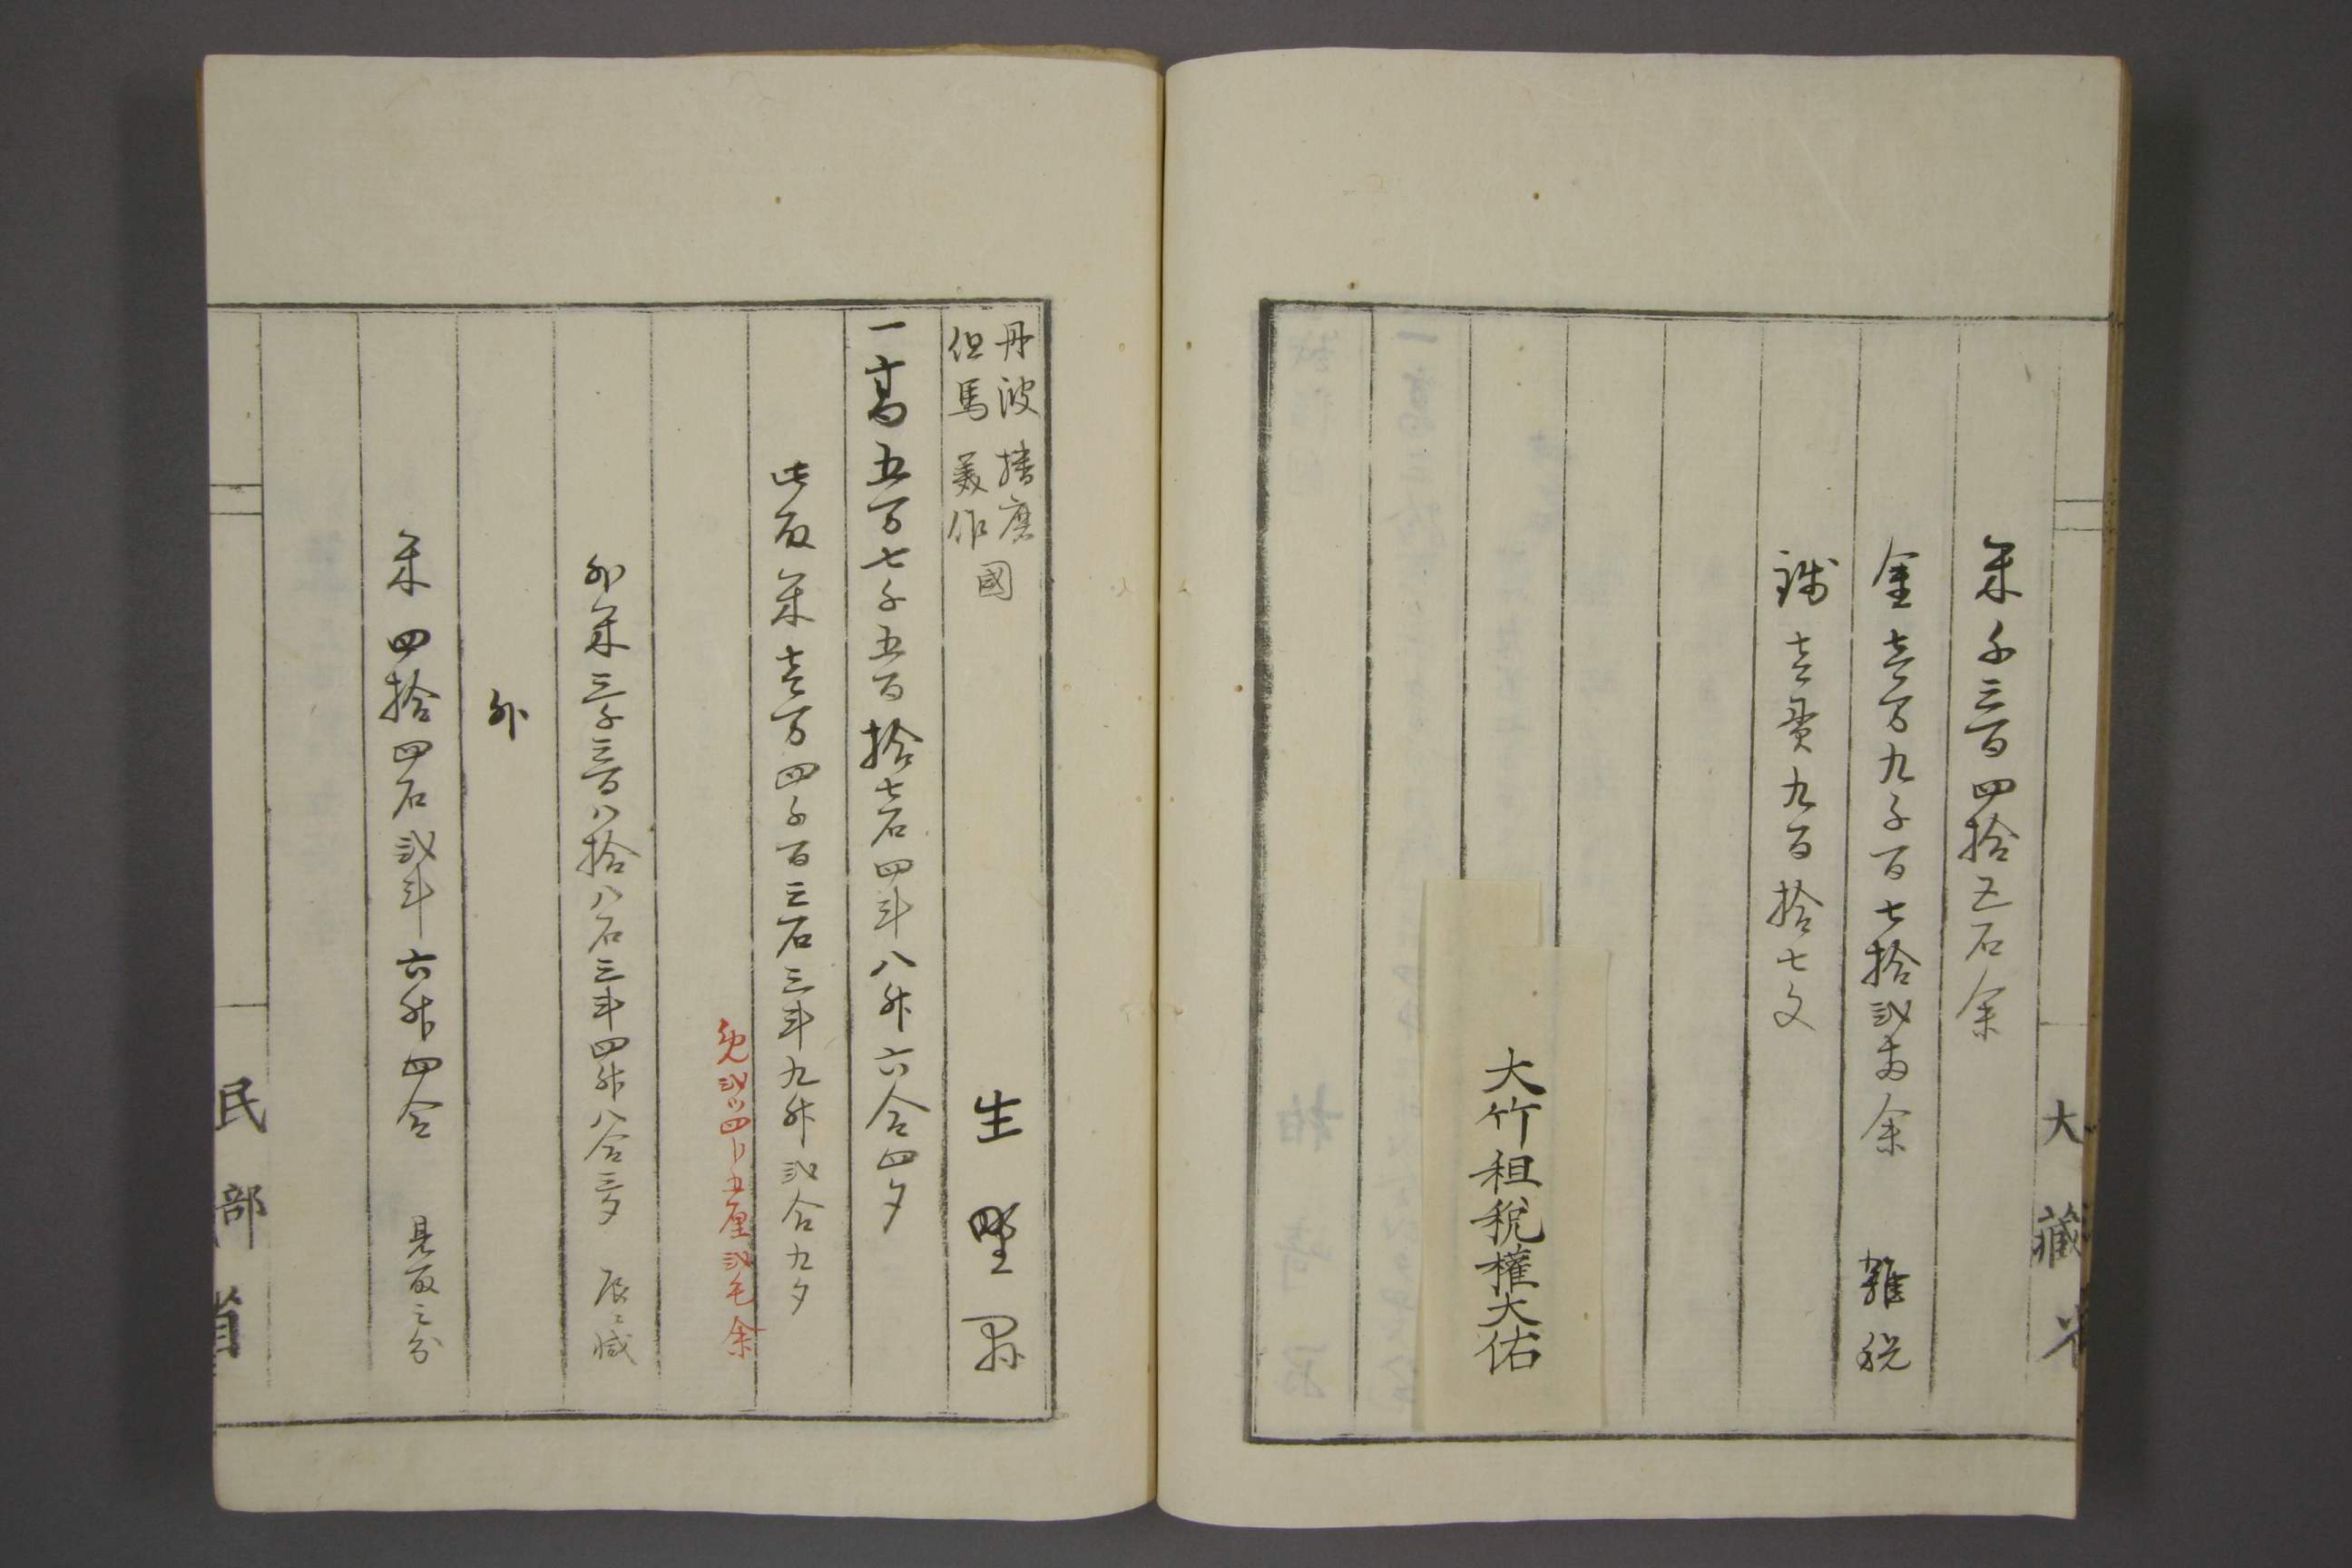 大藏省
米千三百四拾五石余
金壱万九千百七拾弐両余 雑税
銭壱貫九百拾七文
大竹租税權大佑
丹波 播磨
但馬 美作 國
生野縣
一高五万七千五百拾七石四斗八升六合四夕
此取米壱万四千百三石三斗九升弐合九夕
免弐ツ四分五厘弐毛余
外米三千三百八拾八石三斗四升八合三夕 辰ニ減
外
米四拾四石弐斗六升四合 見取之分
民部省